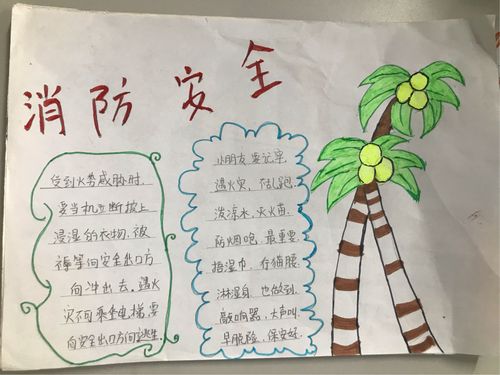 消防安全
受到火势威胁时,
要当机立断披上
浸湿的衣物、被
褥等向安全出口方
向冲出去。遇火
灾不可乘坐电梯要
向安全出口方向逃生。
小朋友,要记牢,
遇火灾,乱跑,
泼凉水,灭火苗,
防烟呛,最重要,
捂湿巾,行猫腰,
淋湿身,也做到,
敲响器,大声叫,
早脱险,保安好.